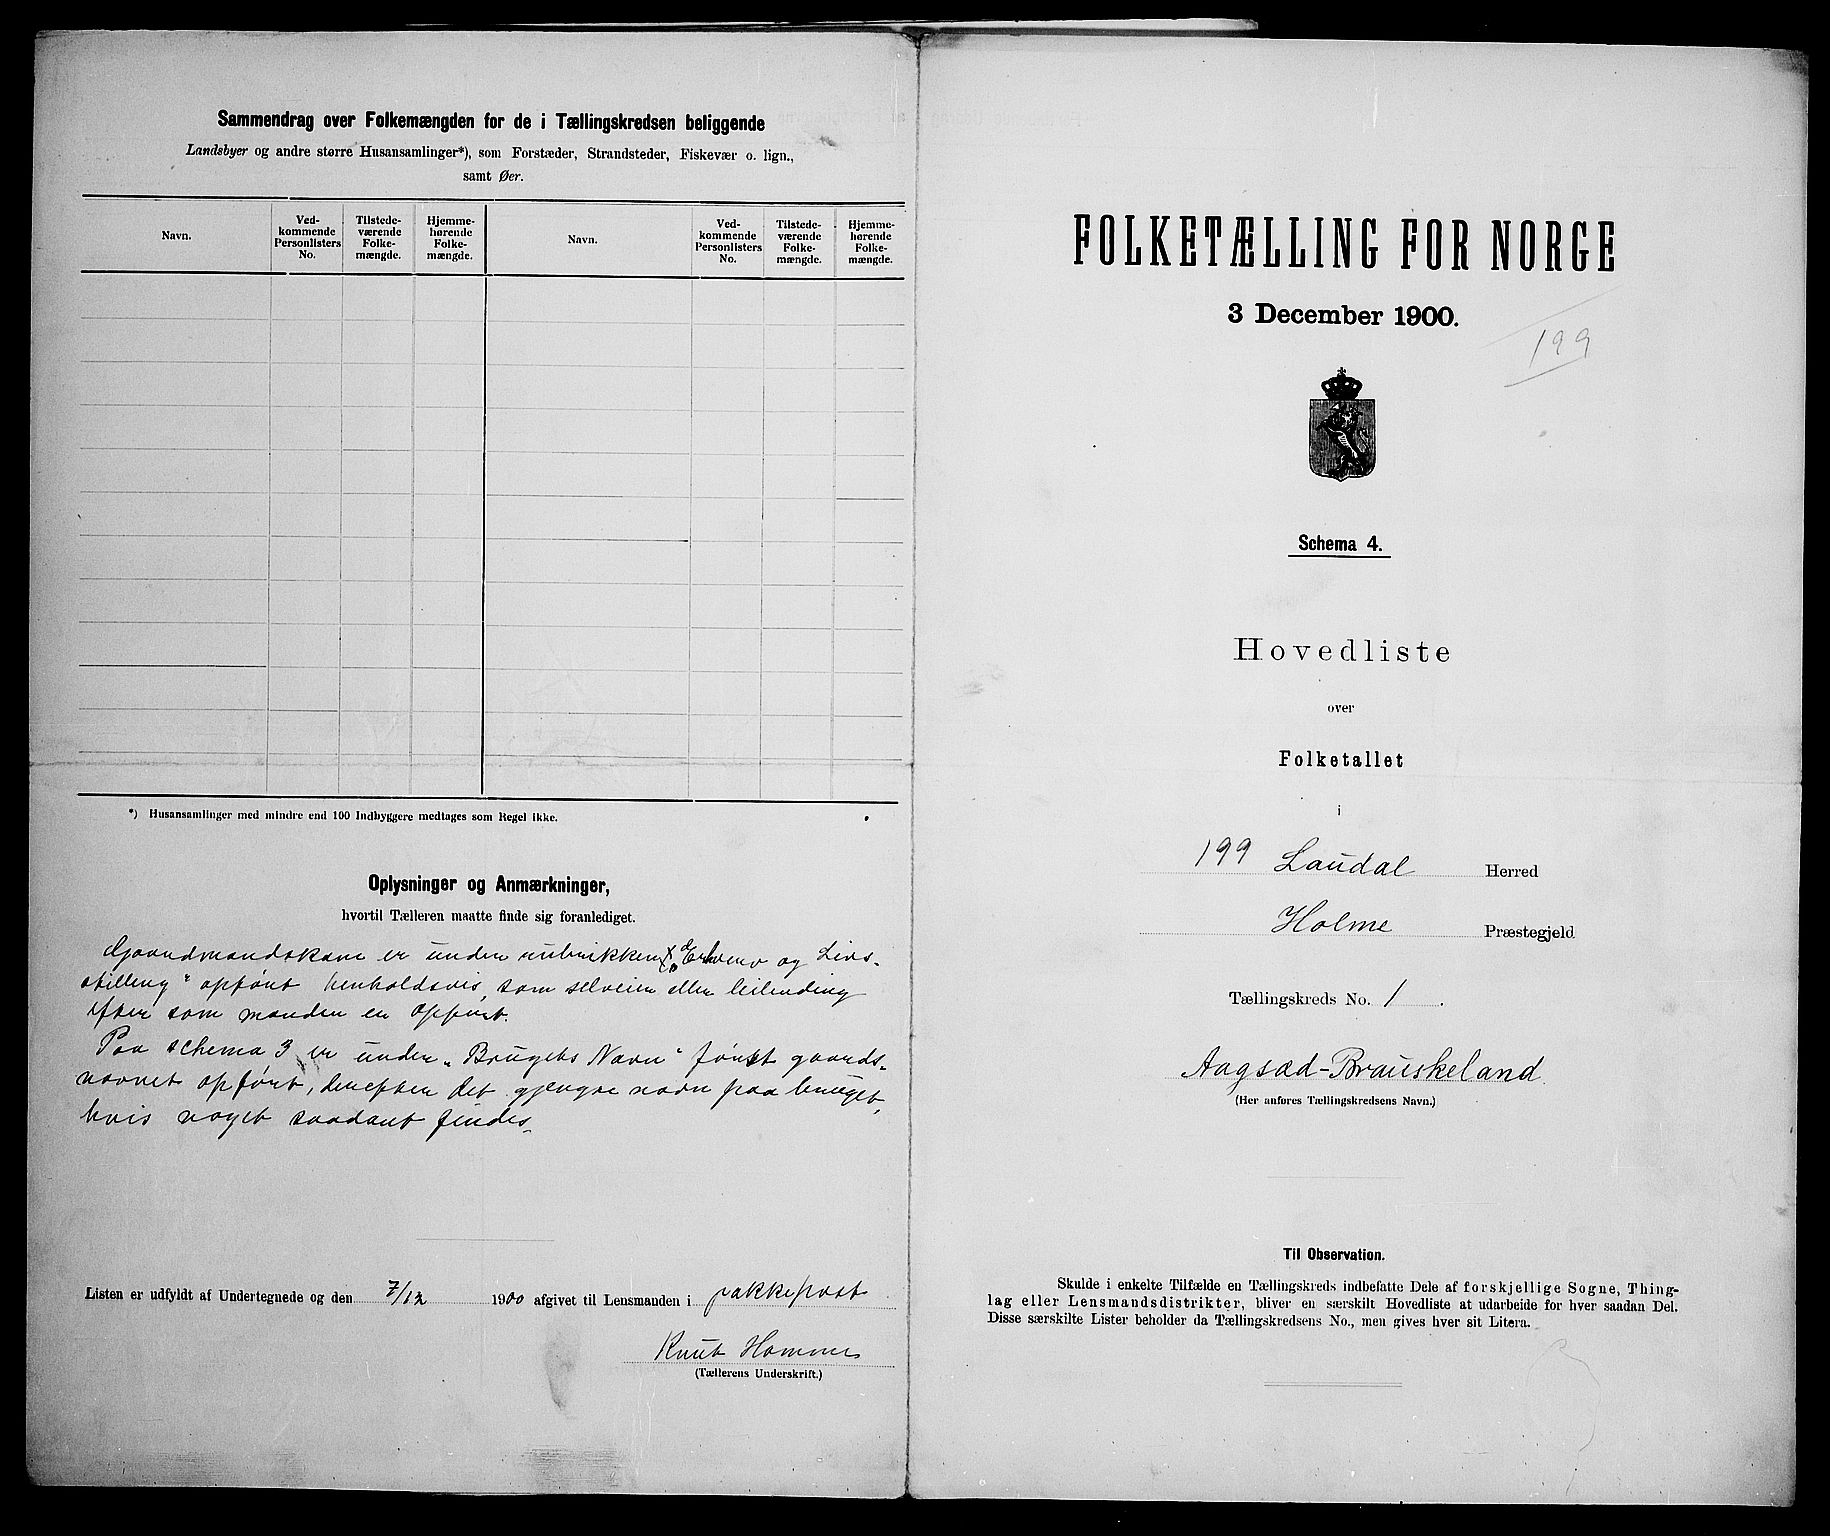 Sammendrag over Folkemængden for de i Tællingskredsen beliggende
Landsbyer og andre større Husansamlinger*), som Forstæder, Strandsteder, Fiskevær o. lign.,
samt Øer.
Navn. Ved-kommende Personlisters No. Tilstede-værende Folke-mængde. Hjemme-hørende Folke-mængde. Navn. Ved-kommende Personlisters No. Tilstede-værende Folke-mængde. Hjemme-hørende Folke-mængde.
*) Husansamlinger med mindre end 100 Indbyggere medtages som Regel ikke.
Oplysninger og Anmærkninger,
hvortil Tælleren maatte finde sig foranlediget.
Gaardmandskone er under rubrikken „Erhverv og Livs-
stilling" opført henholdsvis som selveier eller leilending
efter som manden er opført.
Paa schema 3 er under „Brugets Navn" først gaards-
navnet opført, derefter det gjengse navn paa bruget,
hvis noget saadant findes.
Listen er udfyldt af Undertegnede og den 7/12 1900 afgivet til Lensmanden i pakkepost
Knut Homme
(Tællerens Underskrift.)
FOLKETÆLLING FOR NORGE
3 December 1900.
199
Schema 4.
Hovedliste
over
Folketallet
i
199 Laudal Herred
Holme Præstegjeld
Tællingskreds No. 1.
Aagsæd-Brauskeland
(Her anføres Tællingskredsens Navn.)
Til Observation.
Skulde i enkelte Tilfælde en Tællingskreds indbefatte Dele af forskjellige Sogne, Thing-
lag eller Lensmandsdistrikter, bliver en særskilt Hovedliste at udarbeide for hver saadan Del.
Disse særskilte Lister beholder da Tællingskredsens No., men gives hver sit Litera.